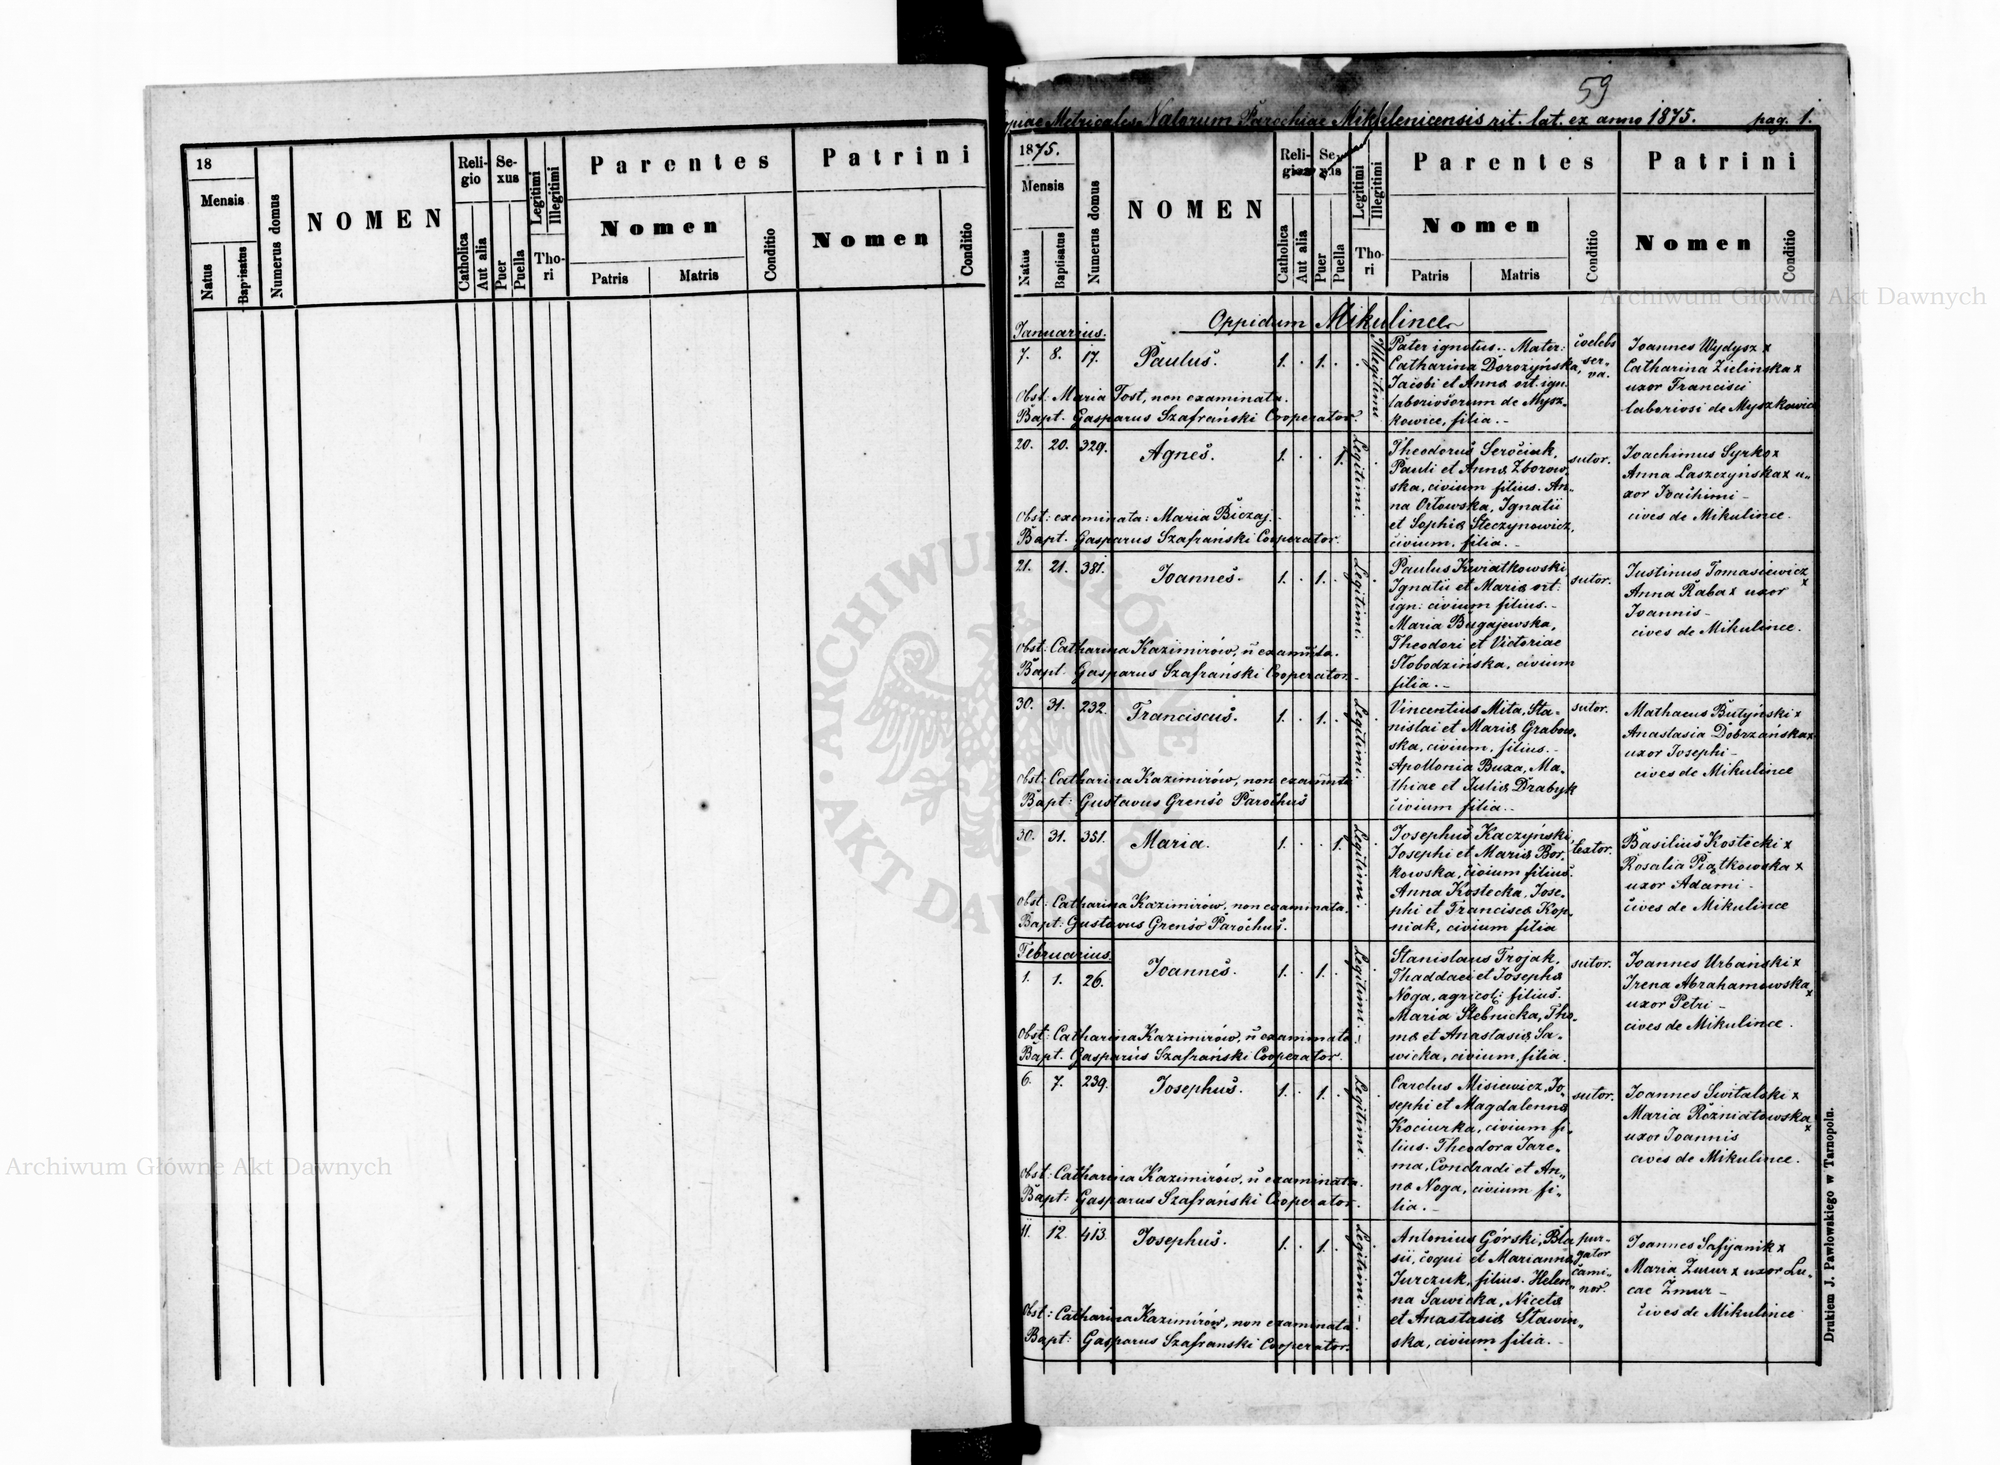 18
Mensis
Natus
Baptisatus
Numerus domus
NOMEN
Religio
Catholica
Aut alia
Sexus
Puer
Puella
Legitimi
Illegitimi
Thori
Parentes
Nomen
Patris
Matris
Conditio
Patrini
Nomen
Conditio
59
Metricales Natorum Parochiae Mikulenicensis rit. lat. ex anno 1875. pag. 1.
1875.
Mensis
Natus
Baptisatus
Numerus domus
NOMEN
Religio
Catholica
Aut alia
Puer
Puella
Legitimi
Illegitimi
Thori
Parentes
Nomen
Patris
Matris
Conditio
Patrini
Nomen
Conditio
Oppidum Mikulince
Januarius.
7. 8. 17. Paulus. 1. . 1. .
Illegitimi
Pater ignotus. Mater:
Catharina Dorozyńska,
Jacobi et Annae ort. ign.
laboriosorum de Mysz-
kowice, filia.
coelebs
ser-
va.
Joannes Wydysz x
Catharina Zielinska x
uxor Francisci
laboriosi de Myszkowice
Obst: Maria Tost, non examinata.
Bapt. Gasparus Szafrański Cooperator.
20. 20. 329. Agnes. 1. . . 1.
Legitimi.
Theodorus Serociak,
Pauli et Annae Zborow-
ska, civium filius. An-
na Orłowska, Ignatii
et Sophiae Steczynowicz,
civium, filia.
sutor.
Joachimus Syrko x
Anna Laszczyńska x u-
xor Joachimi
cives de Mikulince.
Obst: examinata: Maria Biczaj.
Bapt. Gasparus Szafranski Cooperator.
21. 21. 381. Joannes. 1. . 1. .
Legitimi.
Paulus Kwiatkowski
Ignatii et Mariae ort:
ign: civium filius.
Maria Bugajewska,
Theodori et Victoriae
Słobodzińska, civium
filia.
sutor.
Justinus Tomasiewicz x
Anna Raba x uxor
Joannis
cives de Mikulince.
obst: Catharina Kazimirów, ñ examñta.
Bapt. Gasparus Szafrański Cooperator.
30. 31. 232. Franciscus. 1. . 1. .
Legitimi.
Vincentius Mita, Sta-
nislai et Mariae Grabow-
ska, civium, filius.
Apollonia Buxa, Ma-
thiae et Juliae Drabyk
civium filia.
sutor.
Mathaeus Butyński x
Anastasia Dobrzańska x
uxor Josephi
cives de Mikulince
obst: Catharina Kazimirów, non examñta
Bapt: Gustavus Grenso Parochus
30. 31. 351. Maria. 1. . . 1.
Legitimi.
Josephus Kaczyński
Josephi et Mariae Bor-
kowska, civium filius.
Anna Kostecka, Jose-
phi et Franciscae Kop-
niak, civium filia
textor.
Basilius Kostecki x
Rosalia Piątkowska x
uxor Adami
cives de Mikulince
obst: Catharina Kazimirów, non examinata.
Bapt: Gustavus Grenso Parochus.
Februarius.
1. 1. 26. Joannes. 1. . 1. .
Legitimi.
Stanislaus Trojak,
Thaddaei et Josephae
Noga, agricol: filius.
Maria Stebnicka, Tho-
mae et Anastasiae Sa-
wicka, civium, filia.
sutor.
Joannes Urbański x
Irena Abrahamowska x
uxor Petri
cives de Mikulince.
obst: Catharina Kazimirów, ñ examinata
Bapt. Gasparus Szafrański Cooperator.
6. 7. 239. Josephus. 1. . 1. .
Legitimi.
Carolus Misiewicz, Jo-
sephi et Magdalennae
Kociurka, civium fi-
lius. Theodora Jare-
ma, Condradi et An-
nae Noga, civium fi-
lia.
sutor.
Joannes Switalski x
Maria Rozniatowska x
uxor Joannis
cives de Mikulince.
obst: Catharina Kazimirów, ñ examinata.
Bapt: Gasparus Szafrański Cooperator.
11. 12. 413. Josephus. 1. . 1. .
Legitimi.
Antonius Górski, Bla
sii, coqui et Mariannae
Jurczuk, filius. Hele-
na Sawicka, Nicetae
et Anastasiae Stawin-
ska, civium filia.
pur-
gator
cami-
nor.
Joannes Safyanik x
Maria Zmur x uxor Lu-
cae Zmur
cives de Mikulince
Obst: Catharina Kazimirów, non examinata
Bapt: Gasparus Szafranski Cooperator.
Drukiem J. Pawłowskiego w Tarnopolu.
Archiwum Główne Akt Dawnych
Archiwum Główne Akt Dawnych
ARCHIWUM GŁÓWNE AKT DAWNYCH